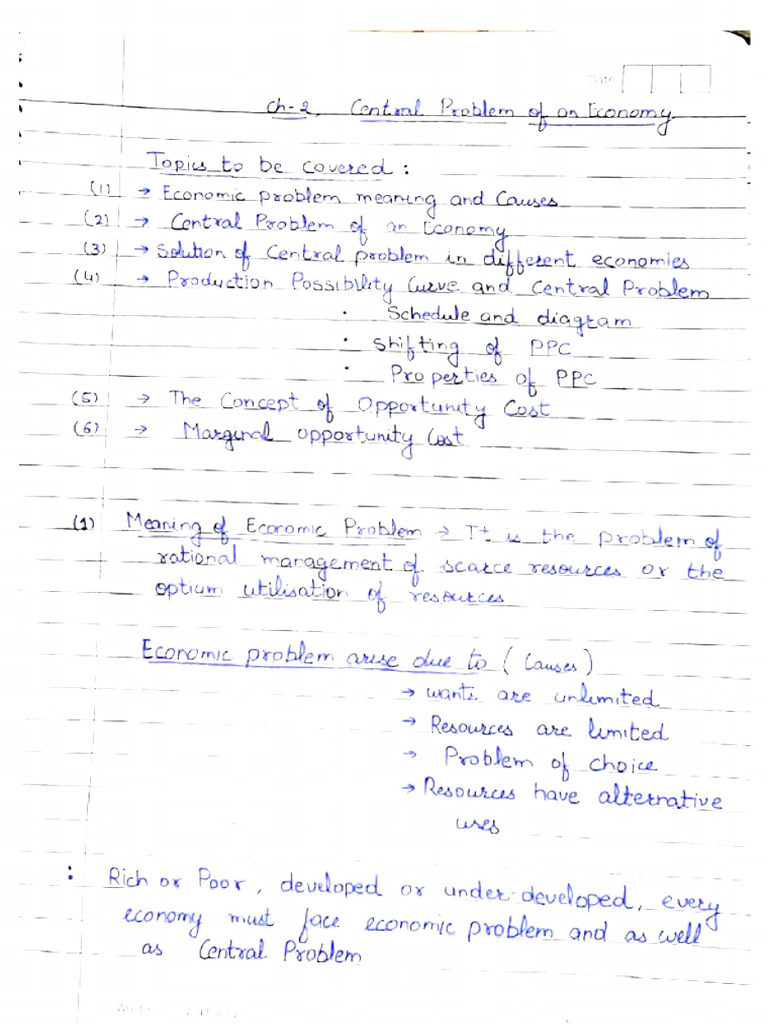 Date
Ch-2, Central Problem of an Economy
Topics to be covered :
(1) → Economic problem meaning and Causes
(2) → Central Problem of an Economy
(3) → Solution of Central problem in different economies
(4) → Production Possibility Curve and Central Problem
· Schedule and diagram
· Shifting of PPC
· Properties of PPC
(5) → The Concept of Opportunity Cost
(6) → Marginal opportunity Cost
(1) Meaning of Economic Problem → It is the problem of
rational management of scarce resources or the
optium utilisation of resources
Economic problem arise due to (Causes)
→ wants are unlimited
→ Resources are limited
→ Problem of choice
→ Resources have alternative
uses
: Rich or Poor, developed or under-developed, every
economy must face economic problem and as well
as Central Problem